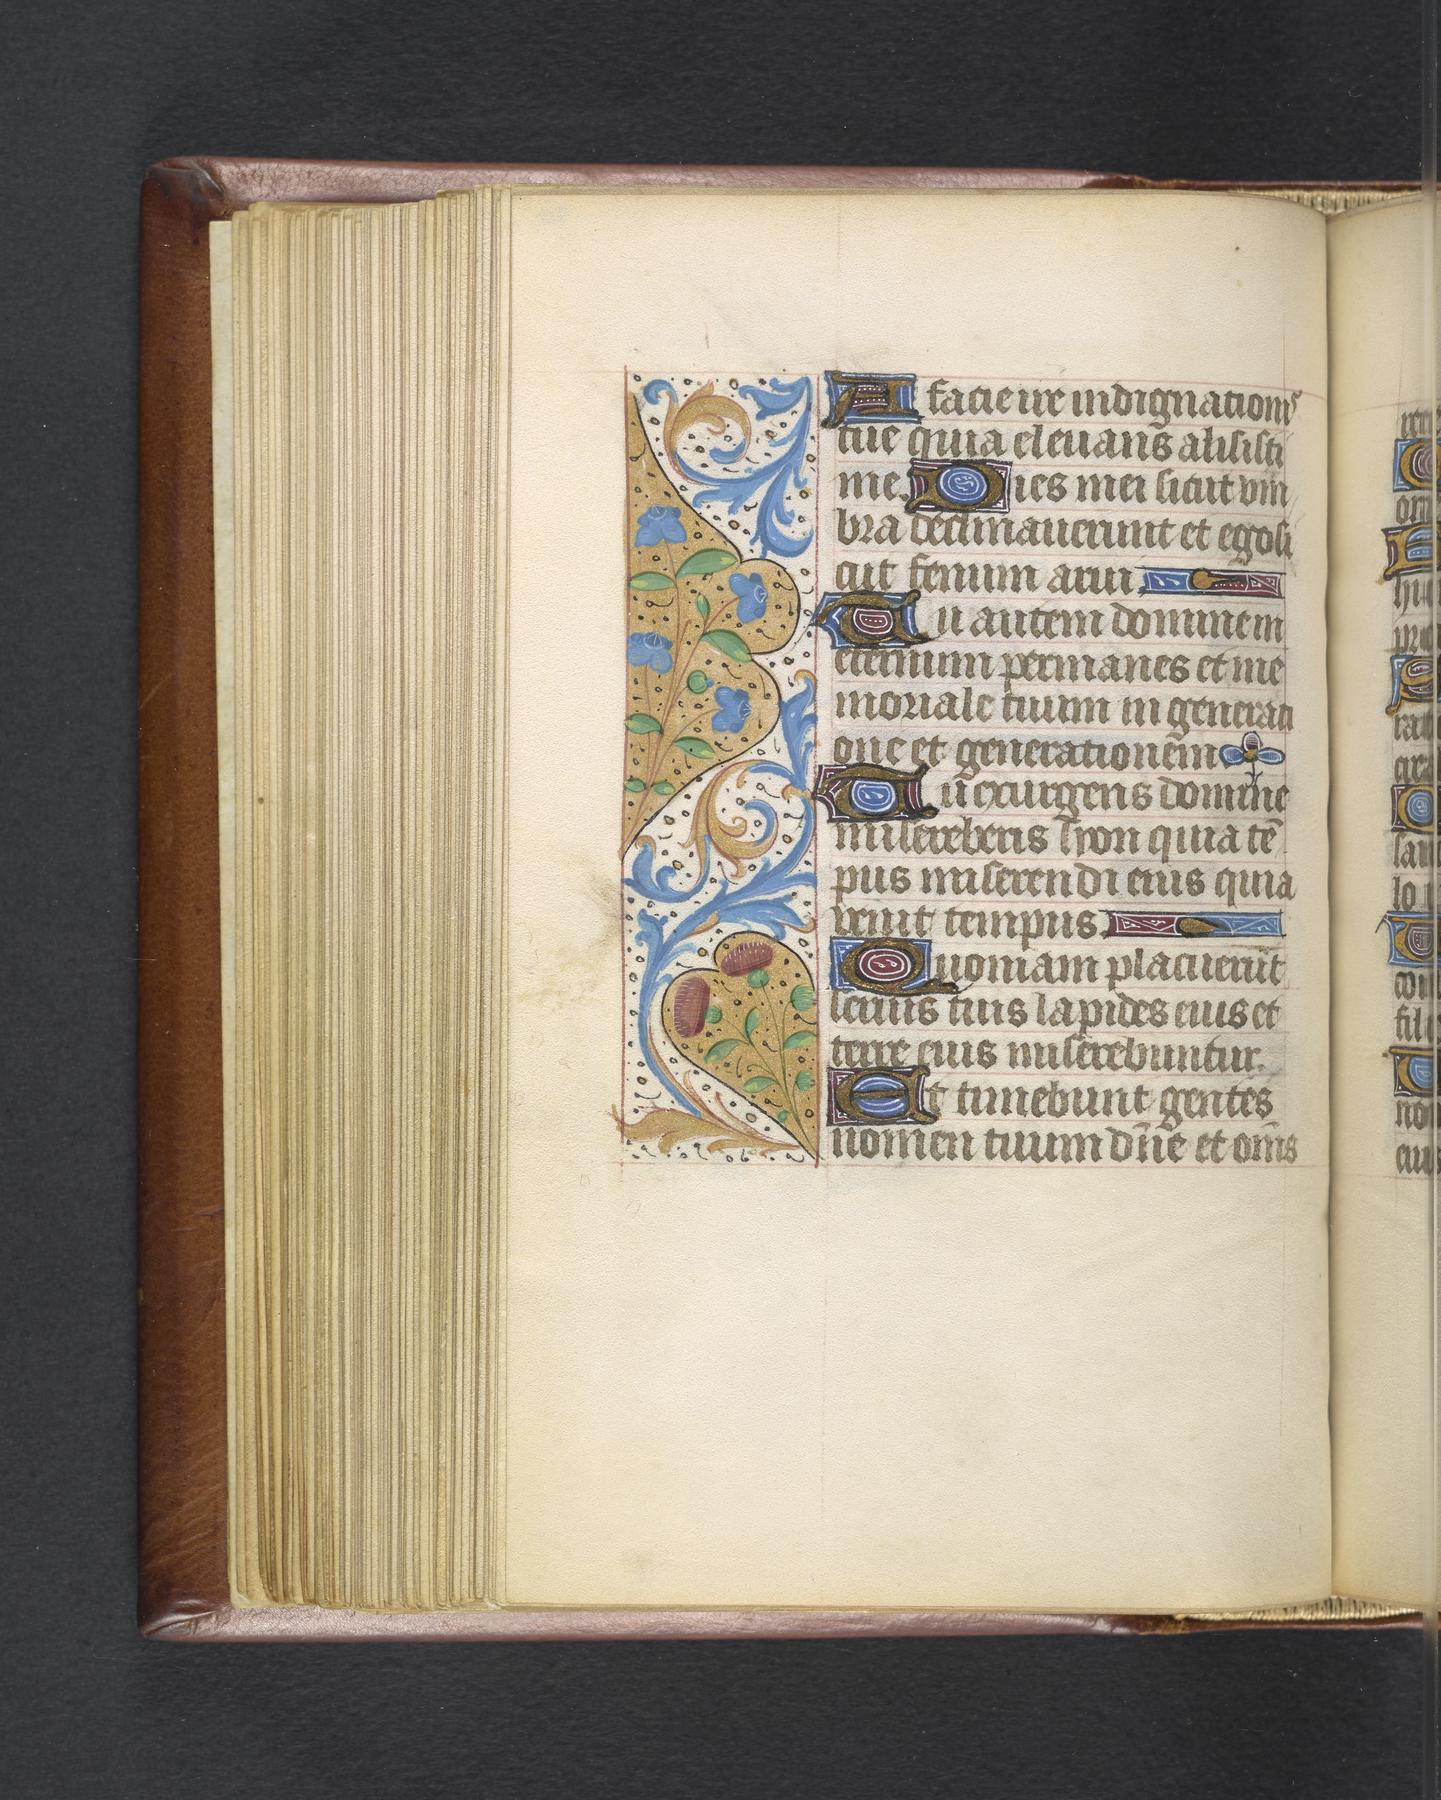 A facie ire indignationis
tue quia elevans alisisti
me. Dies mei sicut vm
bra declinauerunt et ego si
cut fenum arui
Tu autem domine in
eternum permanes et me
moriale tuum in generati
one et generationem
Tu exurgens domine
misereberis syon quia te᷒
pus miserendi eius quia
venit tempus.
Quoniam placuerūt
seruis tuis lapides eius et
terre eius miserebuntur.
Et timebunt gentes
nomen tuum dn̄e et om̄s